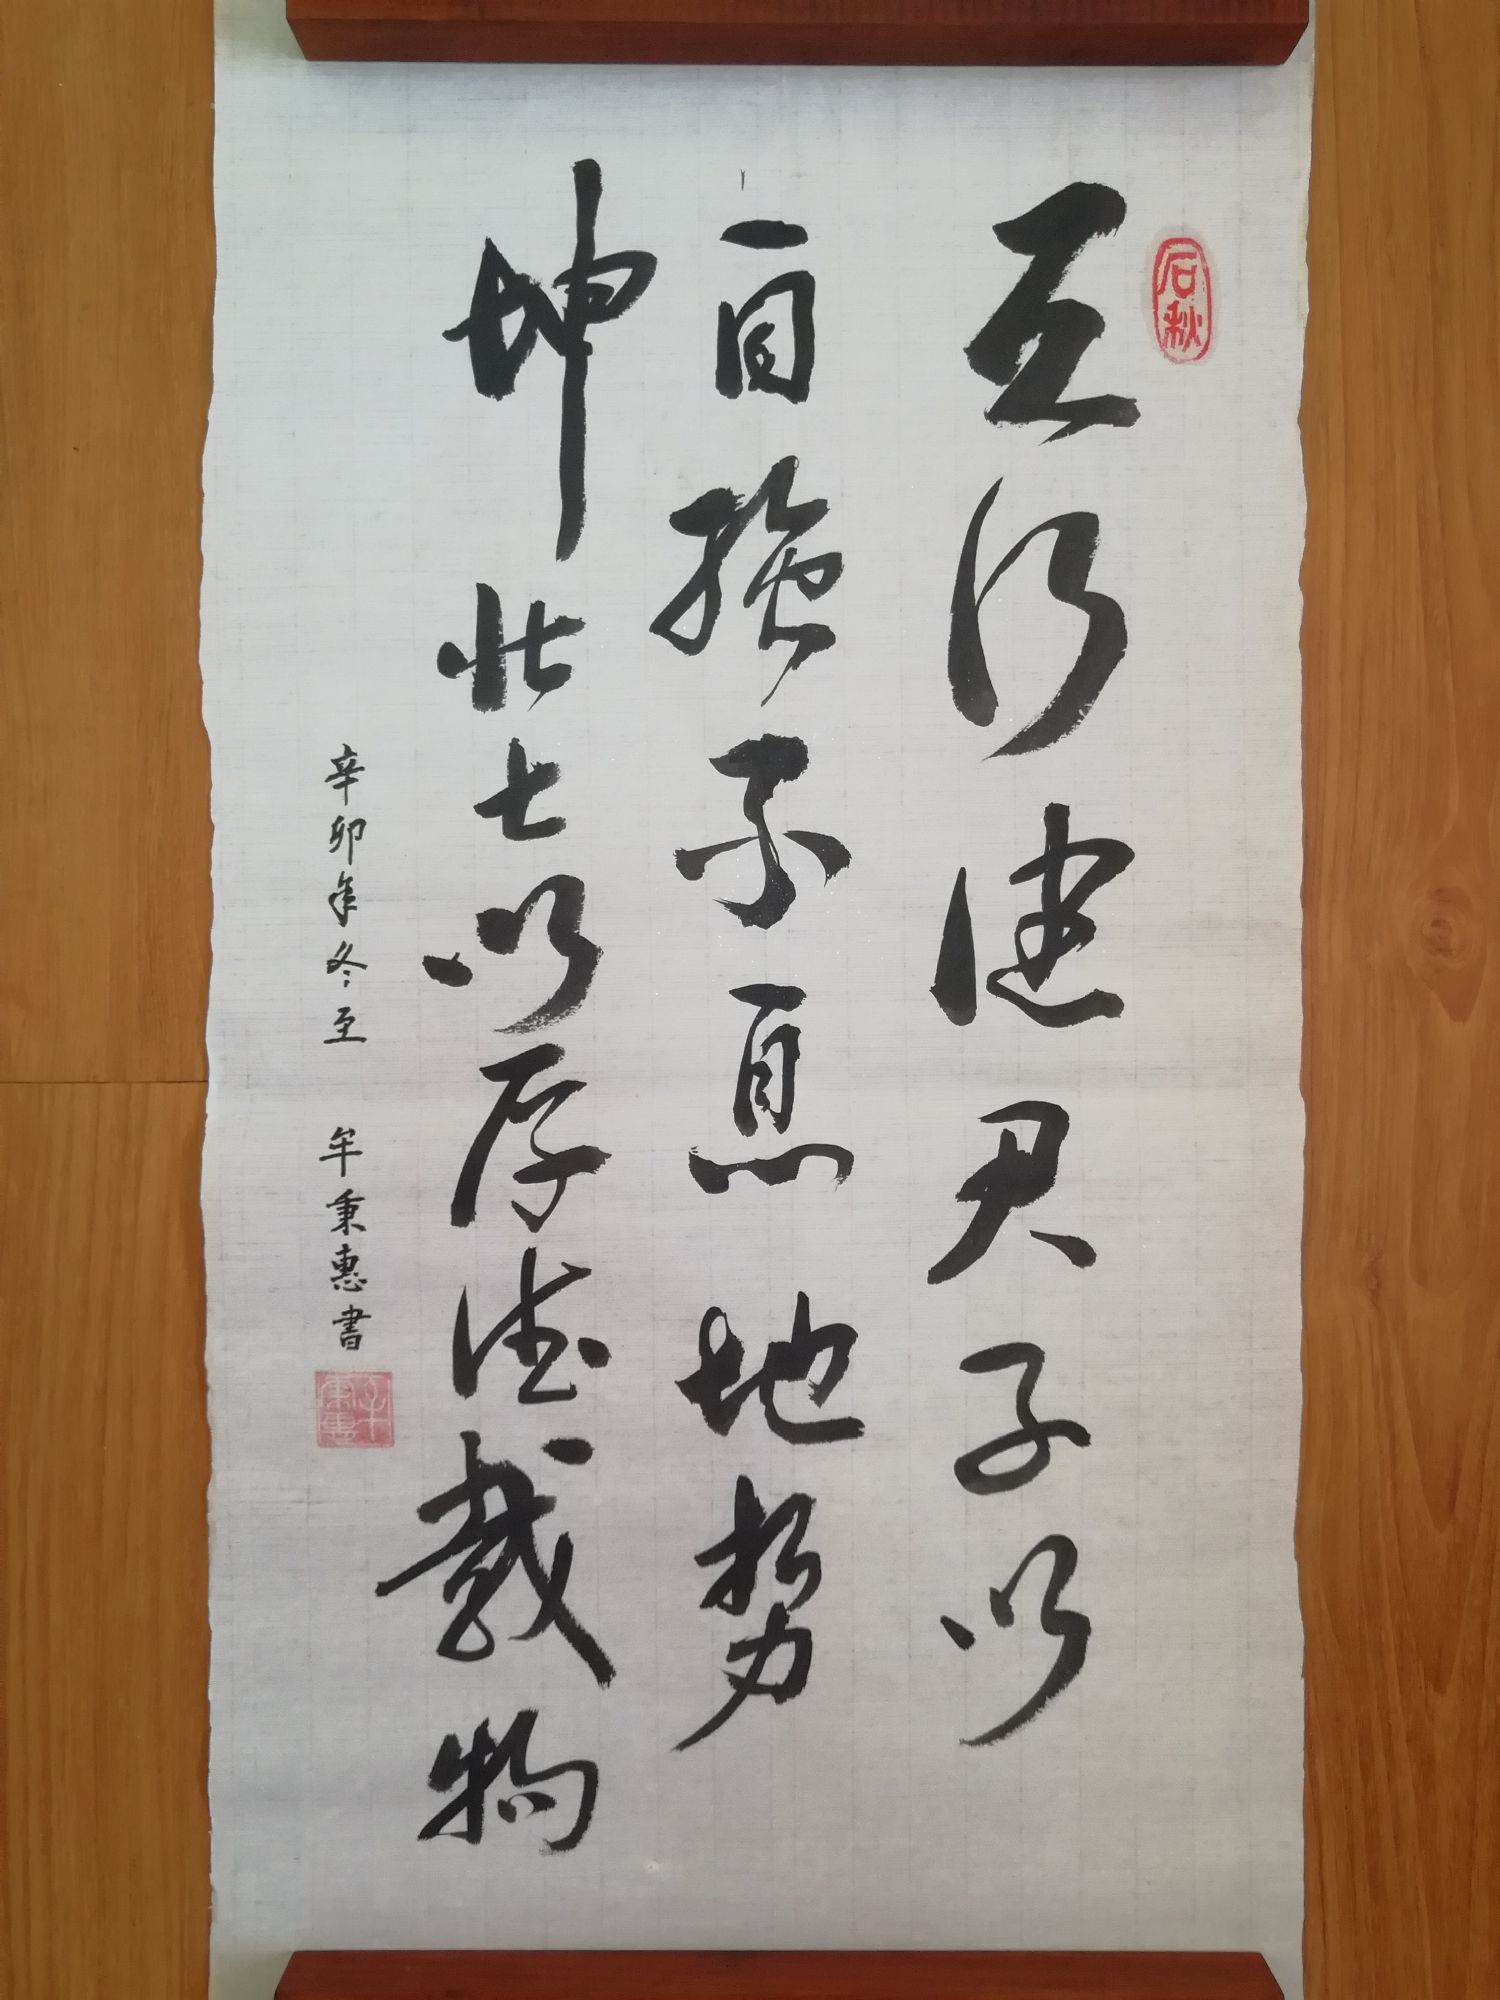 石秋
天行健君子以
自强不息地势
坤壮士以厚德载物
辛卯年冬至 牟秉惠書
牟秉惠